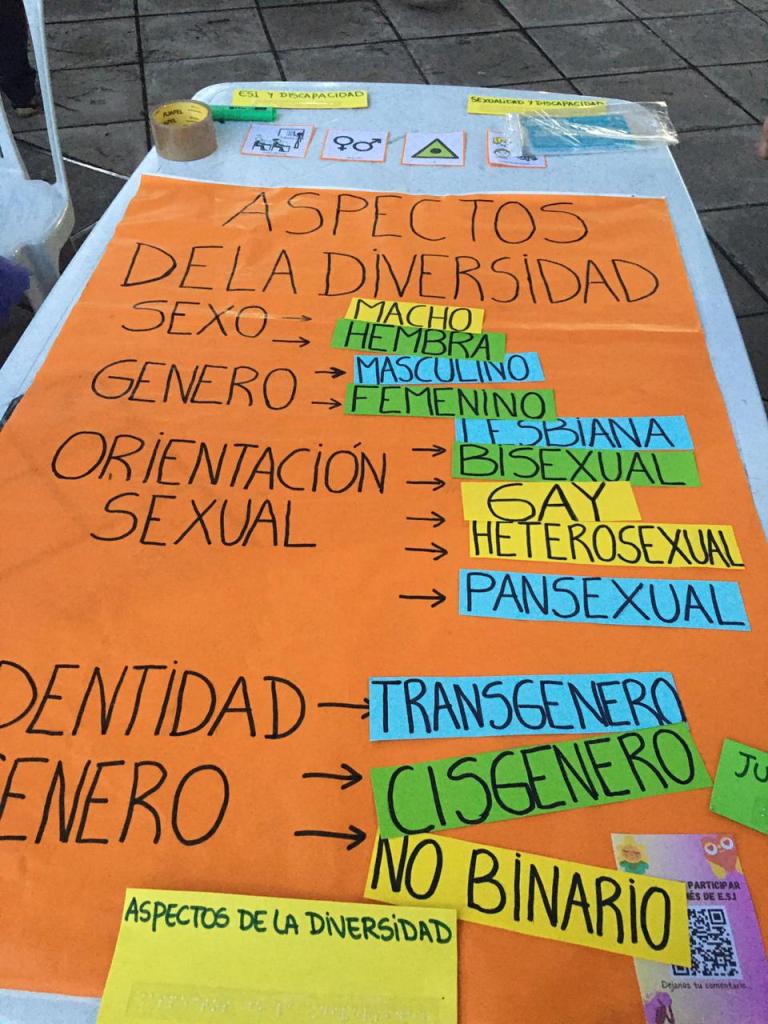 ESI Y DISCAPACIDAD
SEXUALIDAD Y DISCAPACIDAD
ASPECTOS
DE LA DIVERSIDAD
SEXO → MACHO
→ HEMBRA
GENERO → MASCULINO
→ FEMENINO
ORIENTACIÓN
SEXUAL
→ LESBIANA
→ BISEXUAL
→ GAY
→ HETEROSEXUAL
→ PANSEXUAL
DENTIDAD → TRANSGENERO
ENERO → CISGENERO
→ NO BINARIO
JU
PARTICIPAR
ÉS DE E.S.I
Dejanos tu comentario...
ASPECTOS DE LA DIVERSIDAD